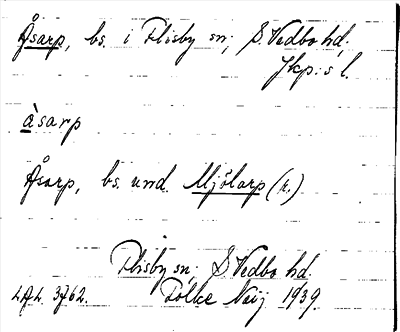 Åsarp, bs. i Flisby sn; S. Vedbo hd,
Jkp:s l.
àsarp
Åsarp, bs. und. Mjölarp (r.)
Flisby sn; S Vedbo hd.
LAL. 3762. Folke Neij 1939.